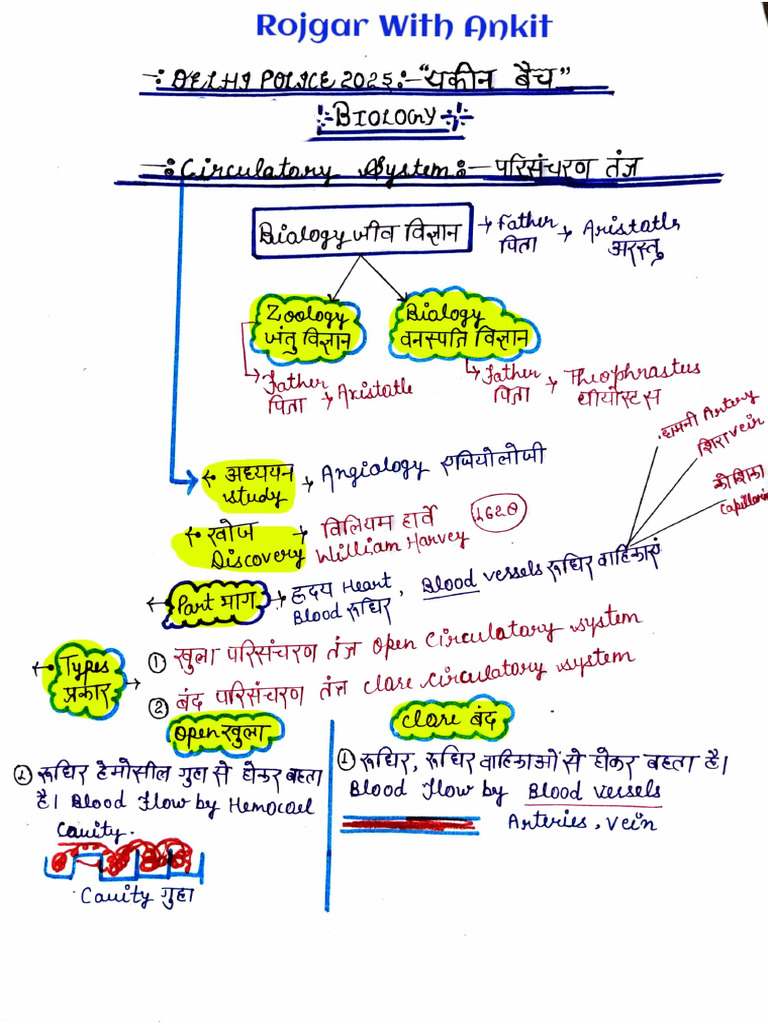 Rojgar With Ankit
-: DELHI POLICE 2025:- "यकीन बैच"
BIOLOGY
-: Circulatory System :- परिसंचरण तंत्र
Biology जीव विज्ञान → Father → Aristatle
पिता अरस्तु
Zoology
जंतु विज्ञान
Biology
वनस्पति विज्ञान
Father
पिता → Aristatle
Father → Theophrastus
पिता थीयोस्टस
धमनी Artery
शिरा vein
कोशिका
Capillari
अध्ययन → Angiology एंजियोलोजी
study
खोज → विलियम हार्वे 1628
Discovery William Harvey
Part भाग → हृदय Heart, Blood vessels रूधिर वाहिकाएं
Blood रूधिर
Types
प्रकार
① खुला परिसंचरण तंत्र Open Circulatory system
② बंद परिसंचरण तंत्र Clare Circulatory system
Open खुला
① रूधिर हेमोसील गुहा से होकर बहता
है। Blood Flow by Hemocoel
Cavity.
Cavity गुहा
Clare बंद
① रूधिर, रूधिर वाहिकाओं से होकर बहता है।
Blood Flow by Blood vessels
Arteries, vein